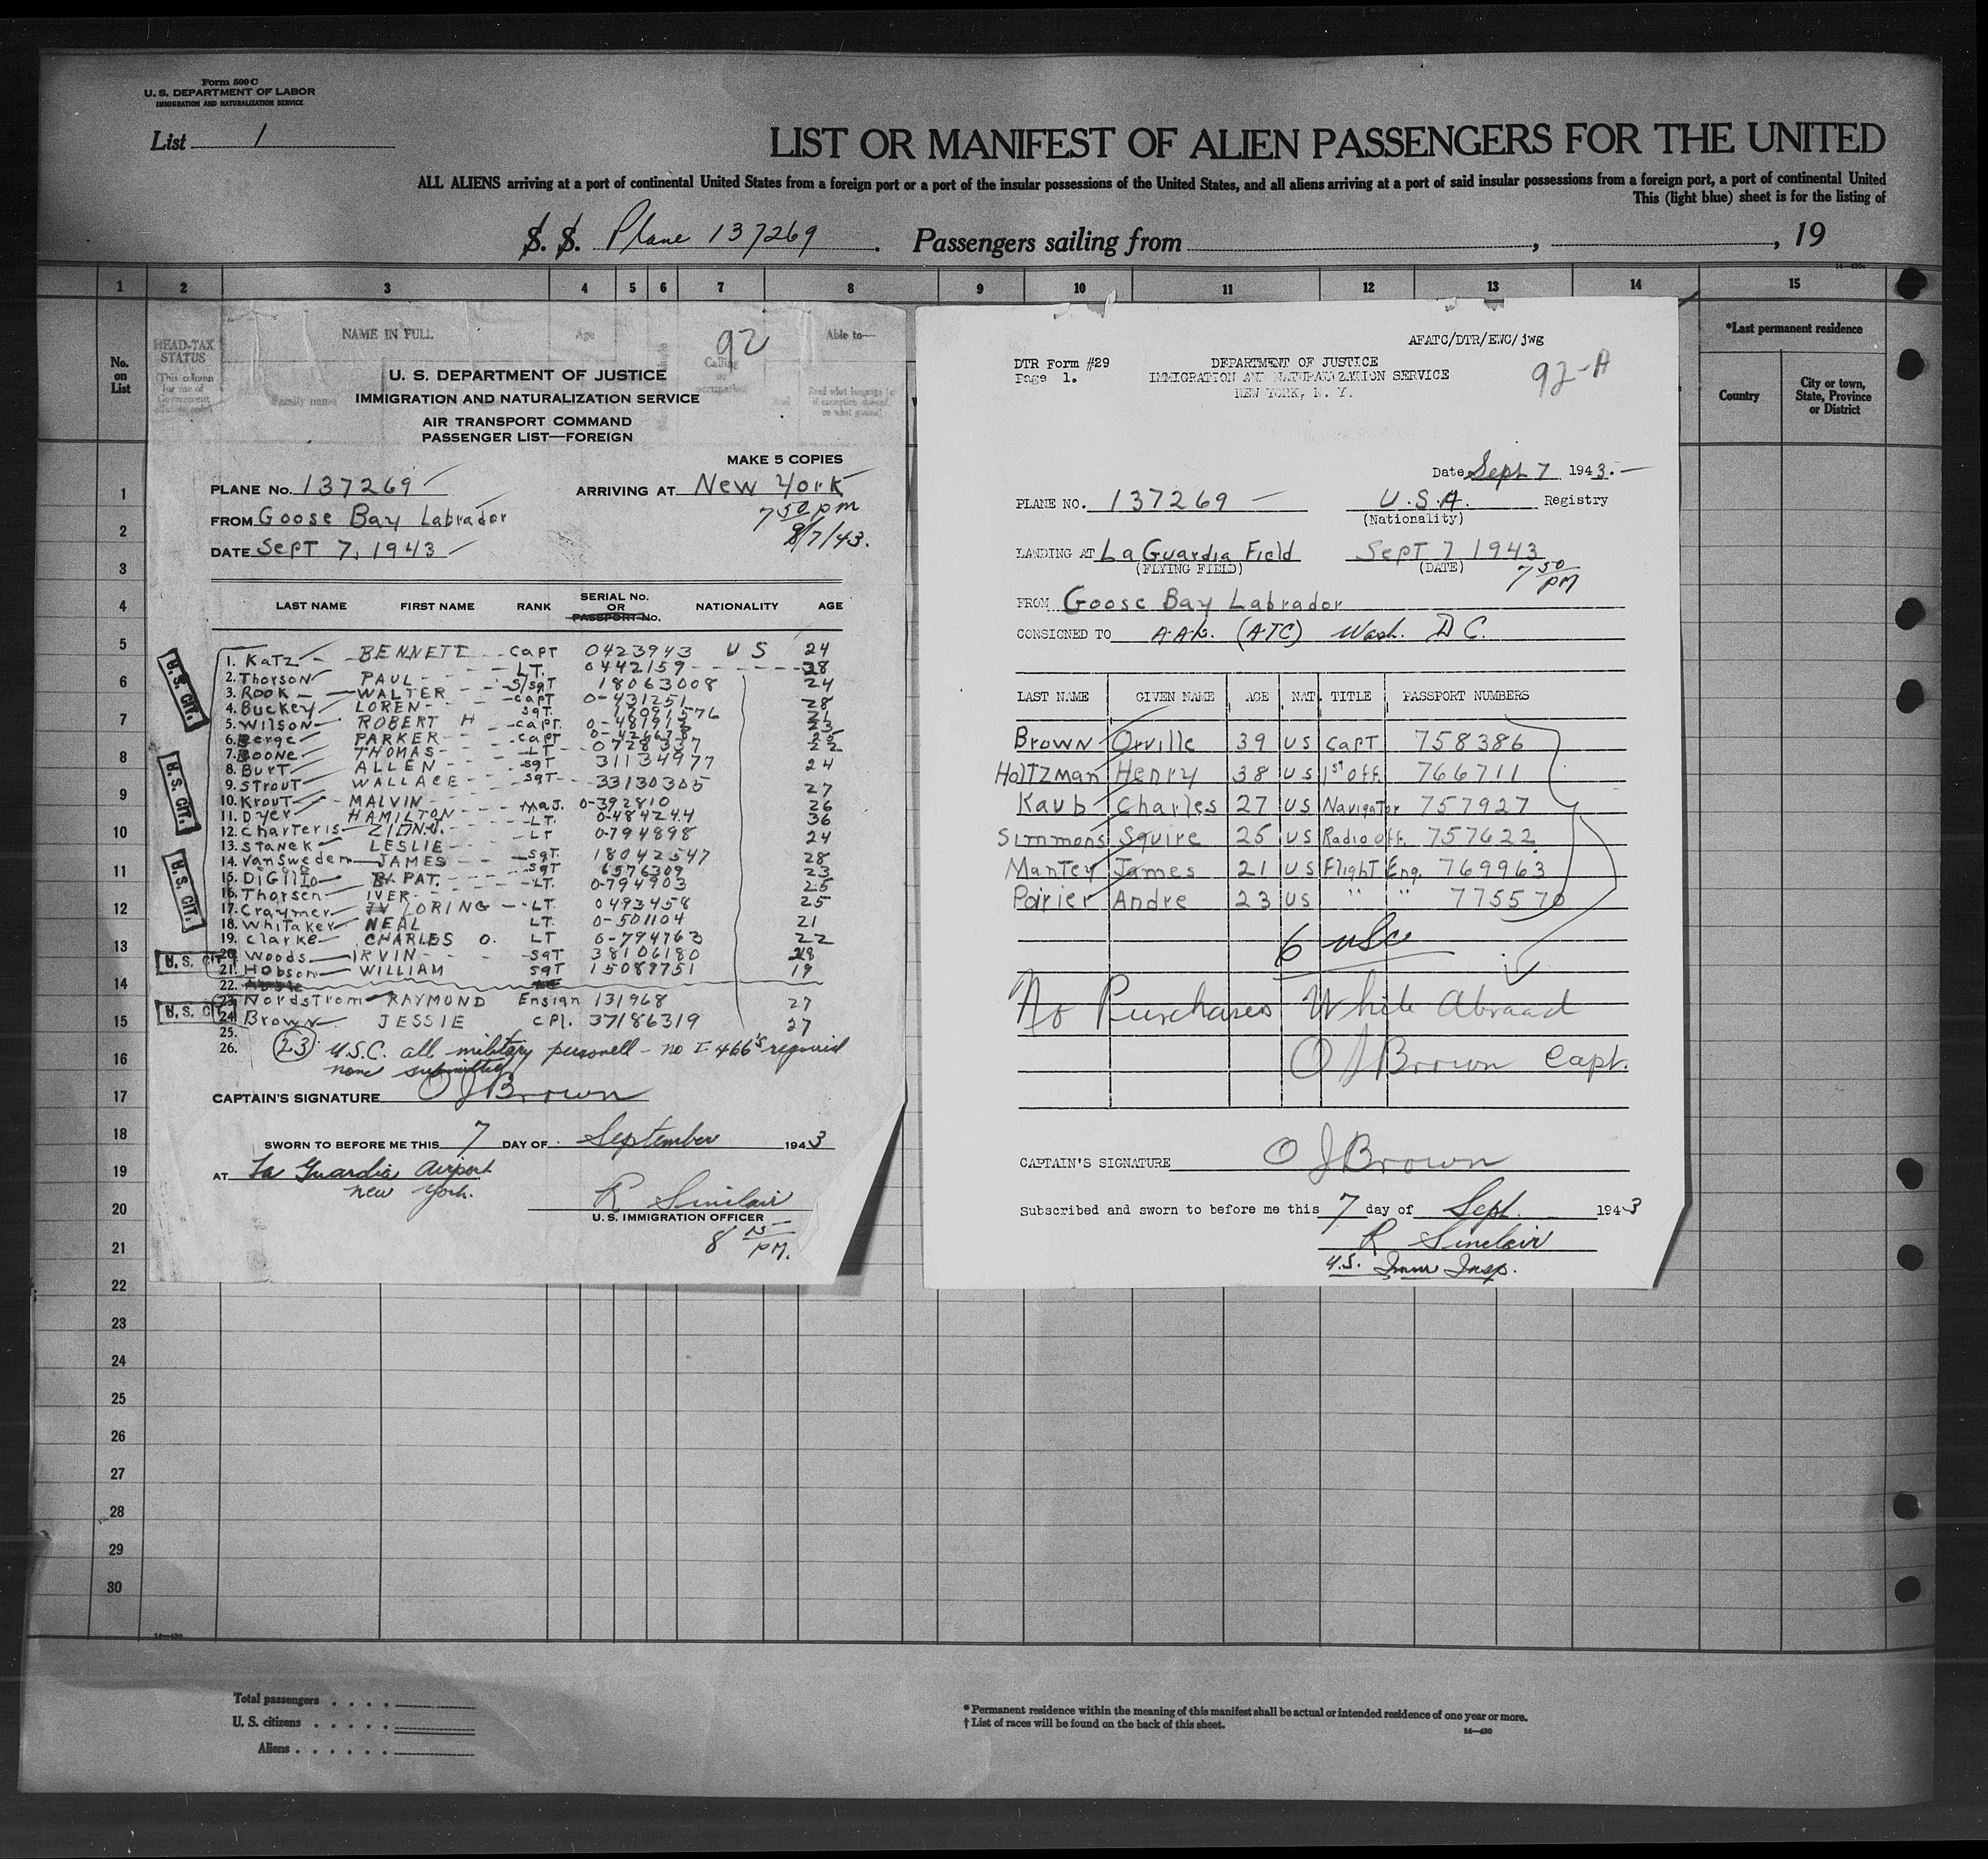 Form 500 C
U. S. DEPARTMENT OF LABOR
IMMIGRATION AND NATURALIZATION SERVICE
List 1
LIST OR MANIFEST OF ALIEN PASSENGERS FOR THE UNITED
ALL ALIENS arriving at a port of continental United States from a foreign port or a port of the insular possessions of the United States, and all aliens arriving at a port of said insular possessions from a foreign port, a port of continental United
This (light blue) sheet is for the listing of
S. S. Plane 137269. Passengers sailing from , , 19
1 2 3 4 5 6 7 8 9 10 11 12 13 14 15
No. on List
HEAD-TAX STATUS
(This column for use of Government
NAME IN FULL
Family name
Age
Calling or occupation
Able to—
Read
*Last permanent residence
Country
City or town, State, Province or District
92
U. S. DEPARTMENT OF JUSTICE
IMMIGRATION AND NATURALIZATION SERVICE
AIR TRANSPORT COMMAND
PASSENGER LIST—FOREIGN
MAKE 5 COPIES
PLANE No. 137269 ARRIVING AT New York
7 50 pm
FROM Goose Bay Labrador
9/7/43.
DATE Sept 7, 1943
LAST NAME FIRST NAME RANK SERIAL No. OR PASSPORT No. NATIONALITY AGE
1. Katz BENNETT Capt 0423943 US 24
2. Thorson PAUL LT. 0442159 28
3. Rook WALTER S/Sgt 18063008 24
4. Buckey LOREN Capt 0-431251 28
5. Wilson ROBERT H Sgt.
6. Berge PARKER Capt.
7. Boone THOMAS Capt
8. Burt ALLEN LT 0728337 22
9. Strout WALLACE Sgt 31134977 24
10. Krout MALVIN Sgt 33130305 27
11. Dyer HAMILTON Maj. 0-392810 26
12. Charteris LT. 0-484244 36
13. Stanek LESLIE LT 0-794898 24
14. VanSweden JAMES Sgt. 18042547 28
15. DiGillio PAT. Sgt 6576309 23
16. Thorsen IVER LT. 0-794903 25
17. Craymer LORING LT. 0493458 25
18. Whitaker NEAL LT. 0-501104 21
19. Clarke CHARLES O. LT 0-794763 22
20. Woods IRVIN Sgt 38106180 28
21. Hobson WILLIAM Sgt 15089751 19
22.
23. Nordstrom RAYMOND Ensign 131968 27
24. Brown JESSIE Cpl. 37186319 27
25.
26. 23 U.S.C. all military personell - no I-466's required
none submitted
U.S. CIT.
U.S. CIT.
U.S. CIT.
U.S. CIT.
U.S. CIT.
CAPTAIN'S SIGNATURE O J Brown
SWORN TO BEFORE ME THIS 7 DAY OF September 1943
AT La Guardia Airport
New York.
R Sinclair
U.S. IMMIGRATION OFFICER
8 15 PM.
AFATC/DTR/EWC/jwg
DTR Form #29
Page 1.
DEPARTMENT OF JUSTICE
IMMIGRATION AND NATURALIZATION SERVICE
NEW YORK, N. Y.
92-A
Date Sept 7 1943.
PLANE NO. 137269 U.S.A. Registry
(Nationality)
LANDING AT La Guardia Field Sept 7 1943
(FLYING FIELD) (DATE)
7 50 PM
FROM Goose Bay Labrador
CONSIGNED TO A.A.F. (ATC) Wash. D C.
LAST NAME GIVEN NAME AGE NAT. TITLE PASSPORT NUMBERS
Brown Orville 39 US Capt 758386
Holtzman Henry 38 US 1st Off. 766711
Kaub Charles 27 US Navigator 757927
Simmons Squire 25 US Radio Off. 757622
Mantey James 21 US Flight Eng. 769963
Poirier Andre 23 US " " 775570
6 USC
No Purchases While Abroad
O J Brown Capt.
CAPTAIN'S SIGNATURE O J Brown
Subscribed and sworn to before me this 7 day of Sept. 1943
R Sinclair
U.S. Imm Insp.
1
2
3
4
5
6
7
8
9
10
11
12
13
14
15
16
17
18
19
20
21
22
23
24
25
26
27
28
29
30
Total passengers
U. S. citizens
Aliens
*Permanent residence within the meaning of this manifest shall be actual or intended residence of one year or more.
†List of races will be found on the back of this sheet.